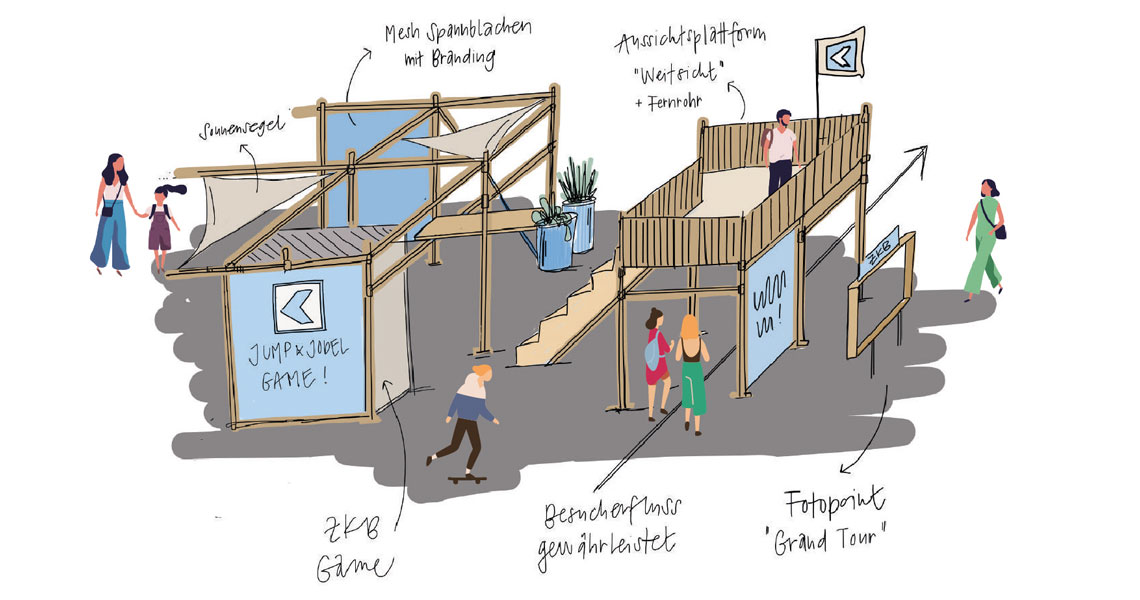 Mesh Spannblachen
mit Branding
Aussichtsplattform
"Weitsicht"
+ Fernrohr
Sonnensegel
ZKB
JUMP & JODEL
GAME!
ZKB
Game
Besucherfluss
gewährleistet
Fotopoint
"Grand Tour"